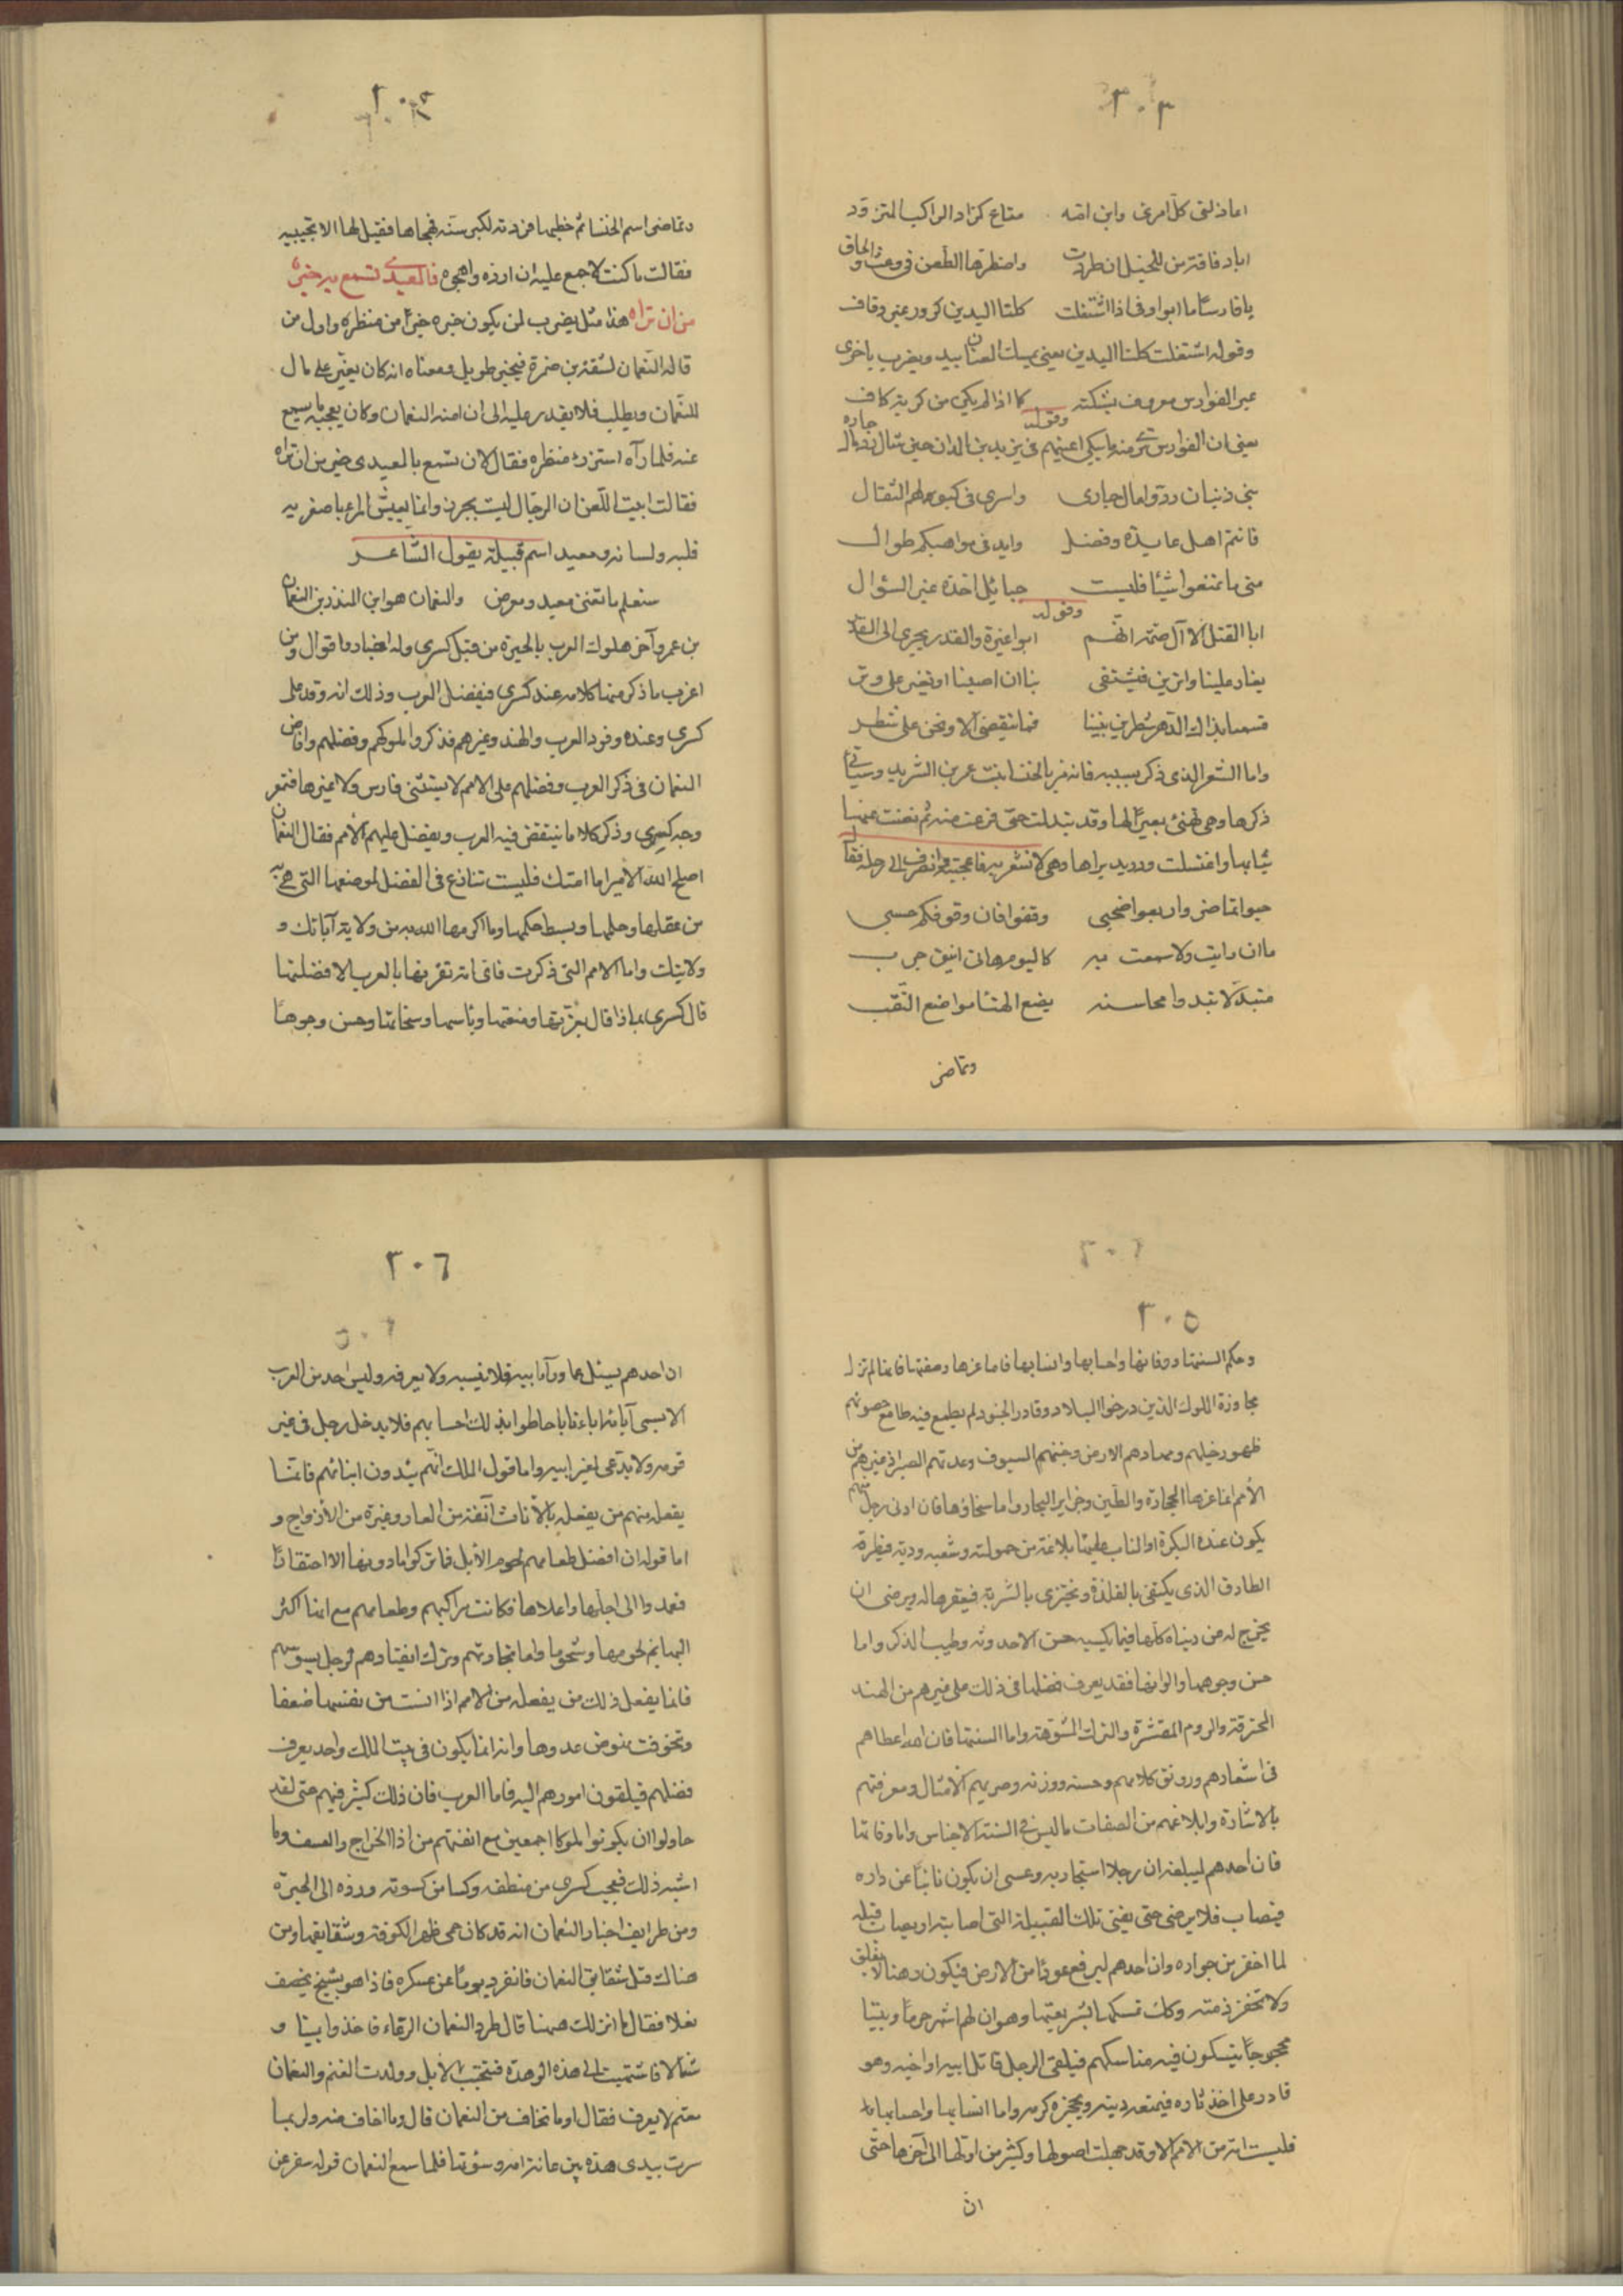 ٣٠٣
اعاذلتى كل امرئ وابن امه متاع كزاد الراكب المتزود
يا فارسا ما ابو اوفى اذا اشتغلت كلتا اليدين كرور غير وقاف
وقوله اشتغلت كلتا اليدين يعنى يمسك العنان بيد ويضرب باخرى
عبر الفوارس معروف بشكته كما اذا لم يكن من كربة كاف
وقوله
واسرى فى كبولهم الثقال
فانتم اهل عايدة وفضل وايد فى مواهبكم طوال
متى ما تمنعوا شيئا فليست حبائل اخذه غير السؤال
وقوله
ابا القتل الا آل صمة انهم ابوا غيره والقدر يجرى الى القدر
يغار علينا واترين فيشتفى بنا ان اصبنا او نغير على وتر
قسمنا بذاك الدهر شطرين بيننا فما ينقضى الا ونحن على شطر
واما الشعر الذى ذكر بسببه فانه مر بالخنسا بنت عمرو بن الشريد وسياتى
ذكرها وهى تهنئ بعيرا لها وقد تبذلت حتى فرغت منه ثم نضت عنها
ثيابها واغتسلت ودريد يراها وهى لا تشعر به فاعجبته وانصرف الى رحله فقال
حيوا تماضر واربعوا صحبى وقفوا فان وقوفكم حسبى
ما ان رايت ولا سمعت به كاليوم هانى اينق جرب
متبذلا تبدوا محاسنه يضع الهنا مواضع النقب
وتماضر
٣٠٤
وتماضر اسم الخنسا ثم خطبها فردته لكبر سنه فهجاها فقيل لها الا تجيبيه
فقالت ما كنت لاجمع عليه ان ارده واهجوه فالمعيدى تسمع به خير
من ان تراه هذا مثل يضرب لمن يكون خبره خيرا من منظره واول من
قاله النعمان لشقة بن ضمرة فى خبر طويل ومعناه انه كان يغير على مال
للنعمان ويطلب فلا يقدر عليه الى ان امنه النعمان وكان يعجبه ما يسمع
عنه فلما رآه استزرى منظره فقال لان تسمع بالمعيدى خير من ان تراه
فقالت ابيت اللعن ان الرجال ليست بجزر وانما يعيش المرء باصغريه
قلبه ولسانه ومعيد اسم قبيلة يقول الشاعر
ستعلم ما تغنى معيد ومعرض والنعمان هو ابن المنذر بن النعمان
بن عمرو آخر ملوك العرب بالحيرة من قبل كسرى وله اخبار واقوال ومن
اغرب ما ذكر منها كلامه عند كسرى فى فضل العرب وذلك انه وقد على
كسرى وعنده وفود العرب والهند وغيرهم فذكروا ملوكهم وفضلهم وافاض
النعمان فى ذكر العرب وفضلهم على الامم لا يستثنى فارس ولا غيرها فتمعر
وجه كسرى وذكر كلاما ينتقص فيه العرب ويفضل عليهم الامم فقال النعمان
اصلح الله الامير اما امتك فليست تنازع فى الفضل لموضعها التى هى به
من عقلها وحلمها وبسط حكمها وما اكرمها الله به من ولاية آبائك و
ولايتك واما الامم التى ذكرت فاى امة تقرنها بالعرب الا فضلتها
قال كسرى بماذا قال بعزتها ومنعتها وباسها وسخائها وحسن وجوهها
٣٠٥
وحكم السنتها ووفائها واحسابها وانسابها فاما عزها ومنعتها فانها لم تزل
مجاورة الملوك الذين درخوا البلاد وقادوا الجنود لم يطمع فيهم طامع حصونهم
ظهور خيلهم ومهادهم الارض وجنتهم السيوف وعدتهم الصبر اذ غيرهم من
الامم انما عزها الحجارة والطين وجزاير البحار واما سخاؤها فان ادنى رجل منهم
يكون عنده البكرة او الناب عليها بلاغه من حمولته وشبعه وريه فيطرقه
الطارق الذى يكتفى بالفلذة ويجتزى بالشربة فيعقرها له ويرضى ان
يخرج له من دنياه كلها فيما يكسبه حسن الاحدوثه وطيب الذكر واما
حسن وجوهها والوانها فقد يعرف فضلها فى ذلك على غيرهم من الهند
المحترقة والروم المقشرة والترك المشوهة واما السنتها فان الله اعطاهم
فى اشعارهم ورونق كلامهم وحسنه ووزنه وضربهم الامثال ومعرفتهم
بالاشارة وابلاغهم من الصفات ما ليس فى السنة الاجناس واما وفائها
فان احدهم ليبلغه ان رجلا استجار به وعسى ان يكون نائيا عن داره
فيصاب فلا يرضى حتى يفنى تلك القبيلة التى اصابته او يصاب قبله
لما اخفر من جواره وان احدهم ليرفع عودا من الارض فيكون رهنا لا يغلق
ولا تخفر ذمته وكك تمسكها بشريعتها وهو ان لهم اشهر حرما وبيتا
محجوجا ينسكون فيه مناسكهم فيلقى الرجل قاتل ابيه او اخيه وهو
قادر على اخذ ثاره فيمنعه دينه ويحجزه كرمه واما انسابها واحسابها
فليست امة من الامم الا وقد جهلت اصولها وكثير من اولها الى آخرها حتى
ان
٣٠٦
ان احدهم يسئل عما ورآ ابيه فلا ينسبه ولا يعرفه وليس احد من العرب
الا يسمى آبائه اباء فابا حاطوا بذلك احسابهم فلا يدخل رجل فى غير
قومه ولا يدعى لغير ابيه واما قول الملك انهم يئدون ابنائهم فانما
يفعله منهم من يفعله بالاناث آنفة من العار وغيرة من الازواج و
اما قوله ان افضل طعامهم لحوم الابل فما تركوا ما دونها الا احتقارا
فعمدوا الى اجلها واعلاها فكانت مراكبهم وطعامهم مع انها اكثر
البهايم لحومها وشحوما واما تحاربهم وترك انقيادهم لرجل يسوسهم
فانما يفعل ذلك من يفعله من الامم اذا انست من نفسها ضعفا
وتخوفت نهوض عدوها وانه انما يكون فى بيت الملك واحد يعرف
فضلهم فيلقون امورهم اليه فاما العرب فان ذلك كثير فيهم حتى لقد
حاولوا ان يكونوا ملوكا اجمعين مع انفتهم من اذا الخراج والعسف وما
اشبه ذلك فعجب كسرى من منطقه وكساه من كسوته ورده الى الحيرة
ومن طرايف اخبار النعمان انه قد كان حمى ظهر الكوفة وشقايقها ومن
هناك قيل شقايق النعمان فانفرد يوما عن عسكره فاذا هو بشيخ يخصف
نعلا فقال ما انزلك ههنا قال طرد النعمان الرعاء فاخذوا يمينا و
شمالا فانتهيت الى هذه الوهدة فنتجت الابل وولدت الغنم والنعمان
معتم لا يعرف فقال اوما تخاف من النعمان قال وما اخاف منه ولربما
سرت بيدى هذه بين عانة امه وسرتها فلما سمع النعمان قوله سفر عن